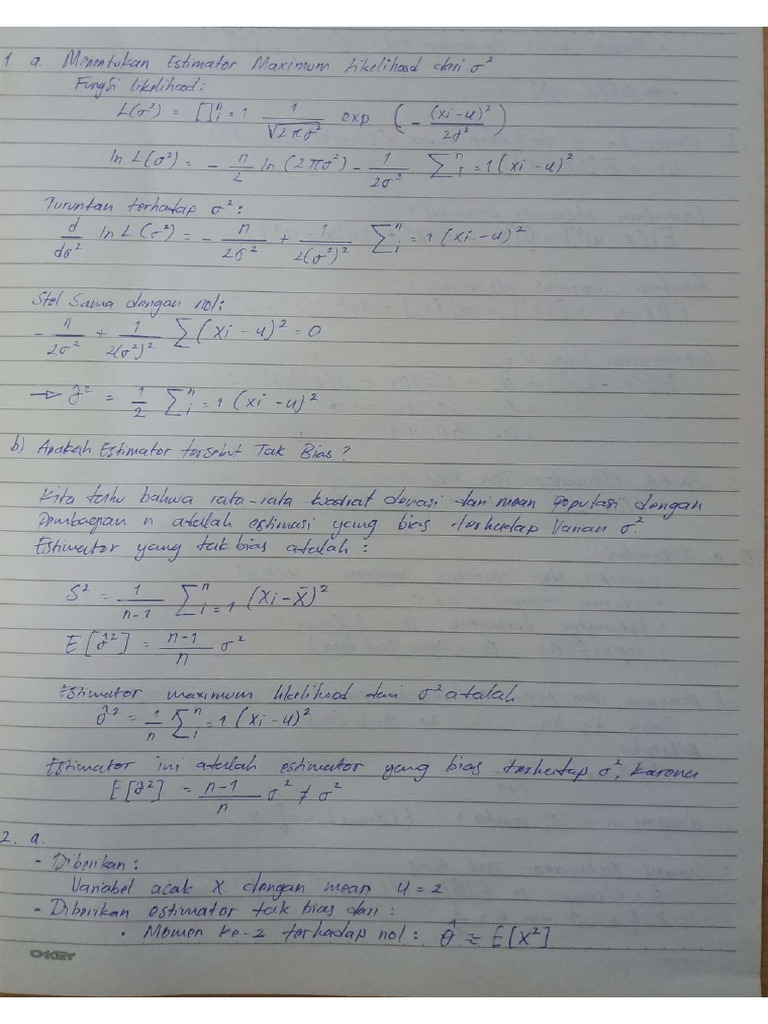 1. a. Menentukan Estimator Maximum Likelihood dari σ²
Fungsi likelihood:
L(σ²) = ∏ⁿᵢ=1 1/√2πσ² exp (- (xi-u)²/2σ²)
ln L(σ²) = - n/2 ln (2πσ²) - 1/2σ² ∑ⁿᵢ=1 (xi-u)²
Turuntan terhadap σ²:
d/dσ² ln L (σ²) = - n/2σ² + 1/2(σ²)² ∑ⁿᵢ=1 (xi-u)²
Stel Sama dengan nol:
- n/2σ² + 1/2(σ²)² ∑(xi-u)² = 0
→ σ̂² = 1/2 ∑ⁿᵢ=1 (xi-u)²
b) Apakah Estimator tersebut Tak Bias?
Kita tahu bahwa rata-rata kwadrat deviasi dari mean populasi dengan
Pembagian n atalah estimasi yang bias terhadap Varian σ².
Estimator yang tak bias atalah:
S² = 1/n-1 ∑ⁿᵢ=1 (Xi-X̄)²
E[σ̂²] = n-1/n σ²
Estimator maximum likelihood dari σ² atalah
σ̂² = 1/n ∑ⁿᵢ=1 (xi-u)²
Estimator ini atalah estimator yang bias terhatap σ², karena
E[σ̂²] = n-1/n σ² ≠ σ²
2. a.
- Diberikan:
Variabel acak X dengan mean u = 2
- Diberikan estimator tak bias dari:
• Momen ke-2 terhadap nol: θ̂ = E[X²]
OKEY